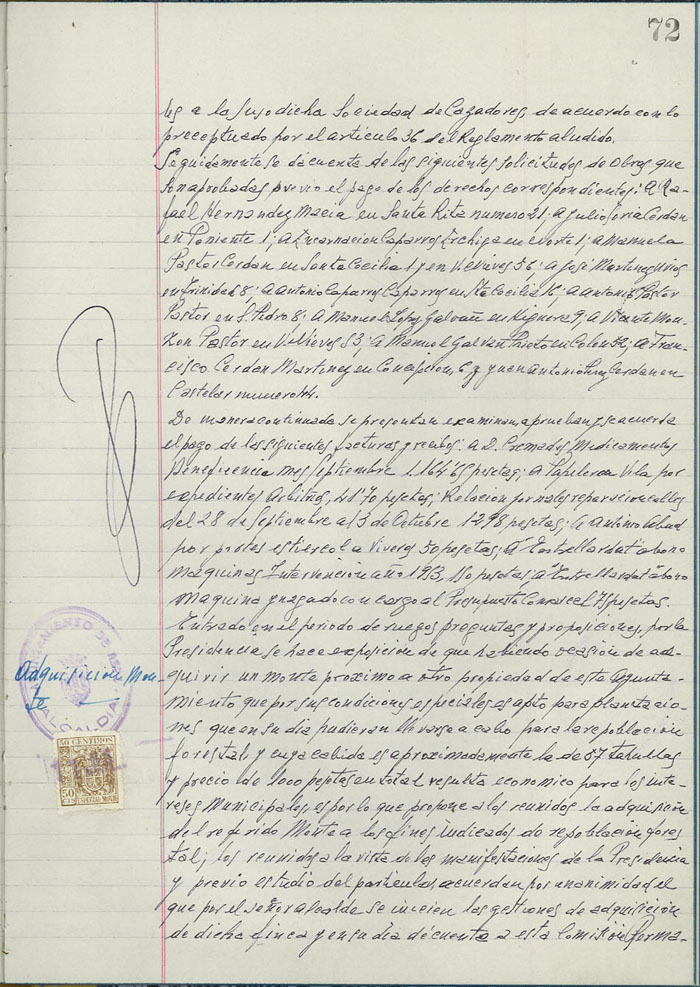 72
les a la Susodicha Sociedad de Cazadores, de acuerdo con lo
preceptuado por el artículo 36 del Reglamento aludido.
Seguidamente se da cuenta de las siguientes solicitudes de Obras que
son aprobadas previo el pago de los derechos correspondientes: A Ra-
fael Hernandez Macia en Santa Rita numero 21; a Julio Coria Cerdan
en Poniente 1; a Encarnacion Caparros en Norte 1; a Manuela
Pastor Cerdan en Santa Cecilia 1 y en 56; a José Martinez
en Trinidad 8; a Antonio Caparros Caparros en Sta Cecilia 16; a Antonio Pastor
Pastor en S. Pedro 8; a Manuel Lopez Galvañ en Higuera 9; a Vicente Mon-
zon Pastor en 53; a Manuel Galvan Prieto en Colon 52; a Fran-
cisco Cerdan Martinez en Concepcion, 6 y Juan Antonio Cerdan en
Castelar numero 44.
De manera continuada se presentan examinan aprueban y se acuerda
el pago de las siguientes facturas y recibos: a D. Premados Medicamentos
Beneficencia mes Septiembre 1.164'65 pesetas; A Papeleria Vila por
expedientes Arbitrios, 41'70 pesetas; Relacion jornales reparacion calles
del 28 de Septiembre al 3 de Octubre 1298 pesetas; a Antonio Abad
por portes estiercol a Viveros 50 pesetas; a abono
maquinas Intervención año 1953, 110 pesetas; a abono
maquina Juzgado con cargo al Presupuesto Comarcal 75 pesetas.
Entrado en el periodo de ruegos preguntas y proposiciones, por la
Presidencia se hace exposición de que habiendo ocasión de ad-
quirir un monte proximo a otro propiedad de este Ayunta-
miento que por sus condiciones especiales es apto para plantacio-
nes que en su dia pudieran llevarse a cabo para la repoblación
forestal y cuya cabida es aproximadamente la de 57 tahullas
y precio de 1000 pesetas en total resulta economico para los inte-
reses Municipales, es por lo que propone a los reunidos la adquisición
del referido Monte a los fines indicados de repoblación fores
tal; los reunidos a la vista de las manifestaciones de la Presidencia
y previo estudio del particular, acuerdan por unanimidad el
que por el señor alcalde se inicien las gestiones de adquisición
de dicha finca y en su dia dé cuenta a esta Comisión Perma-
Adquisición Mon-
te
AYUNTAMIENTO DE
ALCALDIA
50 CENTIMOS
50
ESPECIAL MOVIL